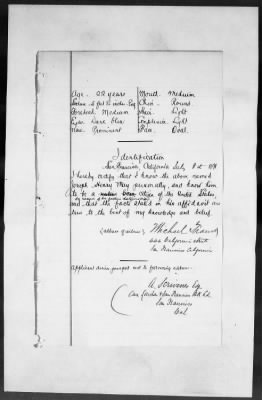 Age 22 years Mouth Medium
Stature 5 feet inches Eng Chin Round
Forehead Medium Hair Light
Eyes Dark Blue Complexion Light
Nose Prominent Face Oval
Identification
San Francisco, California July 8th 18
I hereby certify that I know the above named
Joseph Henry May personally, and know him
to be a native born Citizen of the United States
and that the facts stated in his affidavit are
true to the best of my knowledge and belief.
Michael
California Street
San Francisco California
Applicant desires passport sent to following address:
A. Scrivener Esq
Care London & San Francisco Bk Ld
San Francisco
Cal